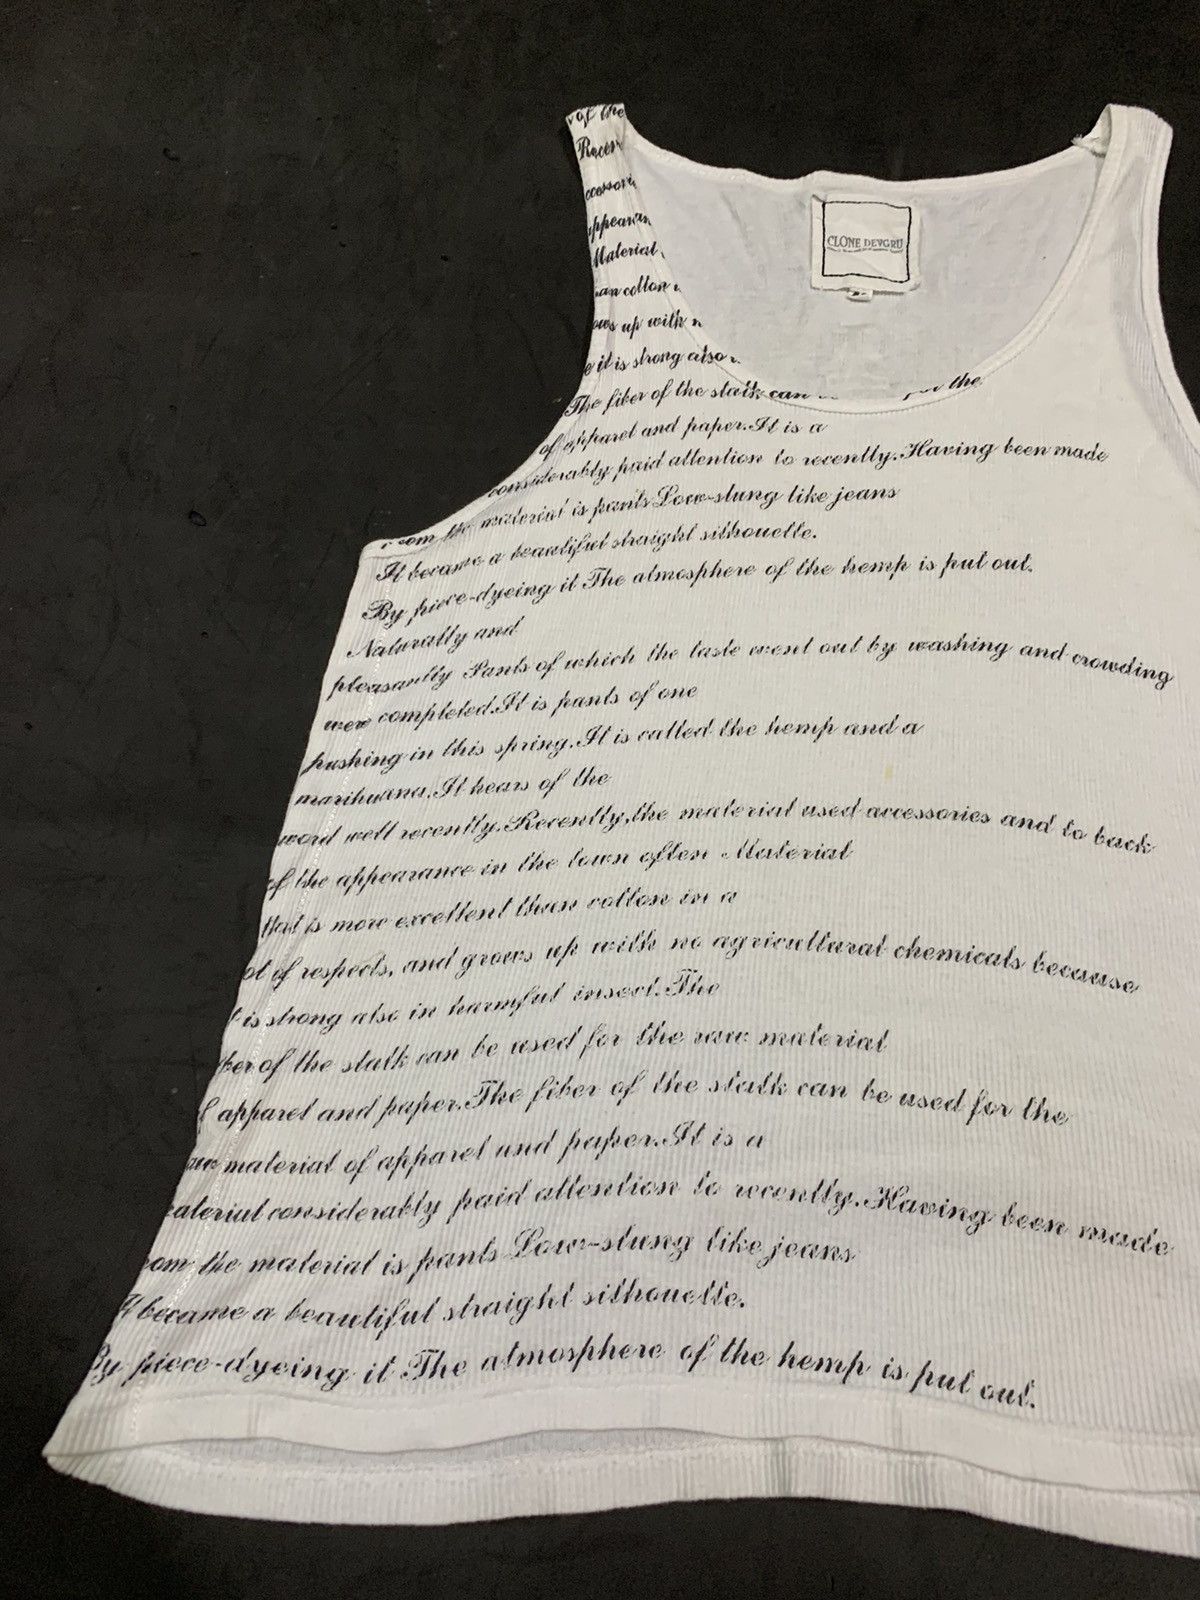 of the
Recen
ccessori
appearan
Material
an cotton
ows up with n
e it is strong also
CLONE DEVGRU
The fiber of the stalk can the
of apparel and paper.It is a
considerably paid attention to recently.Having been made
om the material is pants Low-slung like jeans
It became a beautiful straight silhouette.
By piece-dyeing it The atmosphere of the hemp is put out.
Naturally and
pleasantly Pants of which the taste went out by washing and crowding
were completed.It is pants of one
pushing in this spring.It is called the hemp and a
marihuana.It hears of the
word well recently.Recently,the material used accessories and to back
of the appearance in the town often Material
that is more excellent than cotton in a
ot of respects, and grows up with no agricultural chemicals because
t is strong also in harmful insect.The
ber of the stalk can be used for the raw material
f apparel and paper.The fiber of the stalk can be used for the
aw material of apparel and paper.It is a
aterial considerably paid attention to recently.Having been made
om the material is pants Low-slung like jeans
It became a beautiful straight silhouette.
By piece-dyeing it The atmosphere of the hemp is put out.